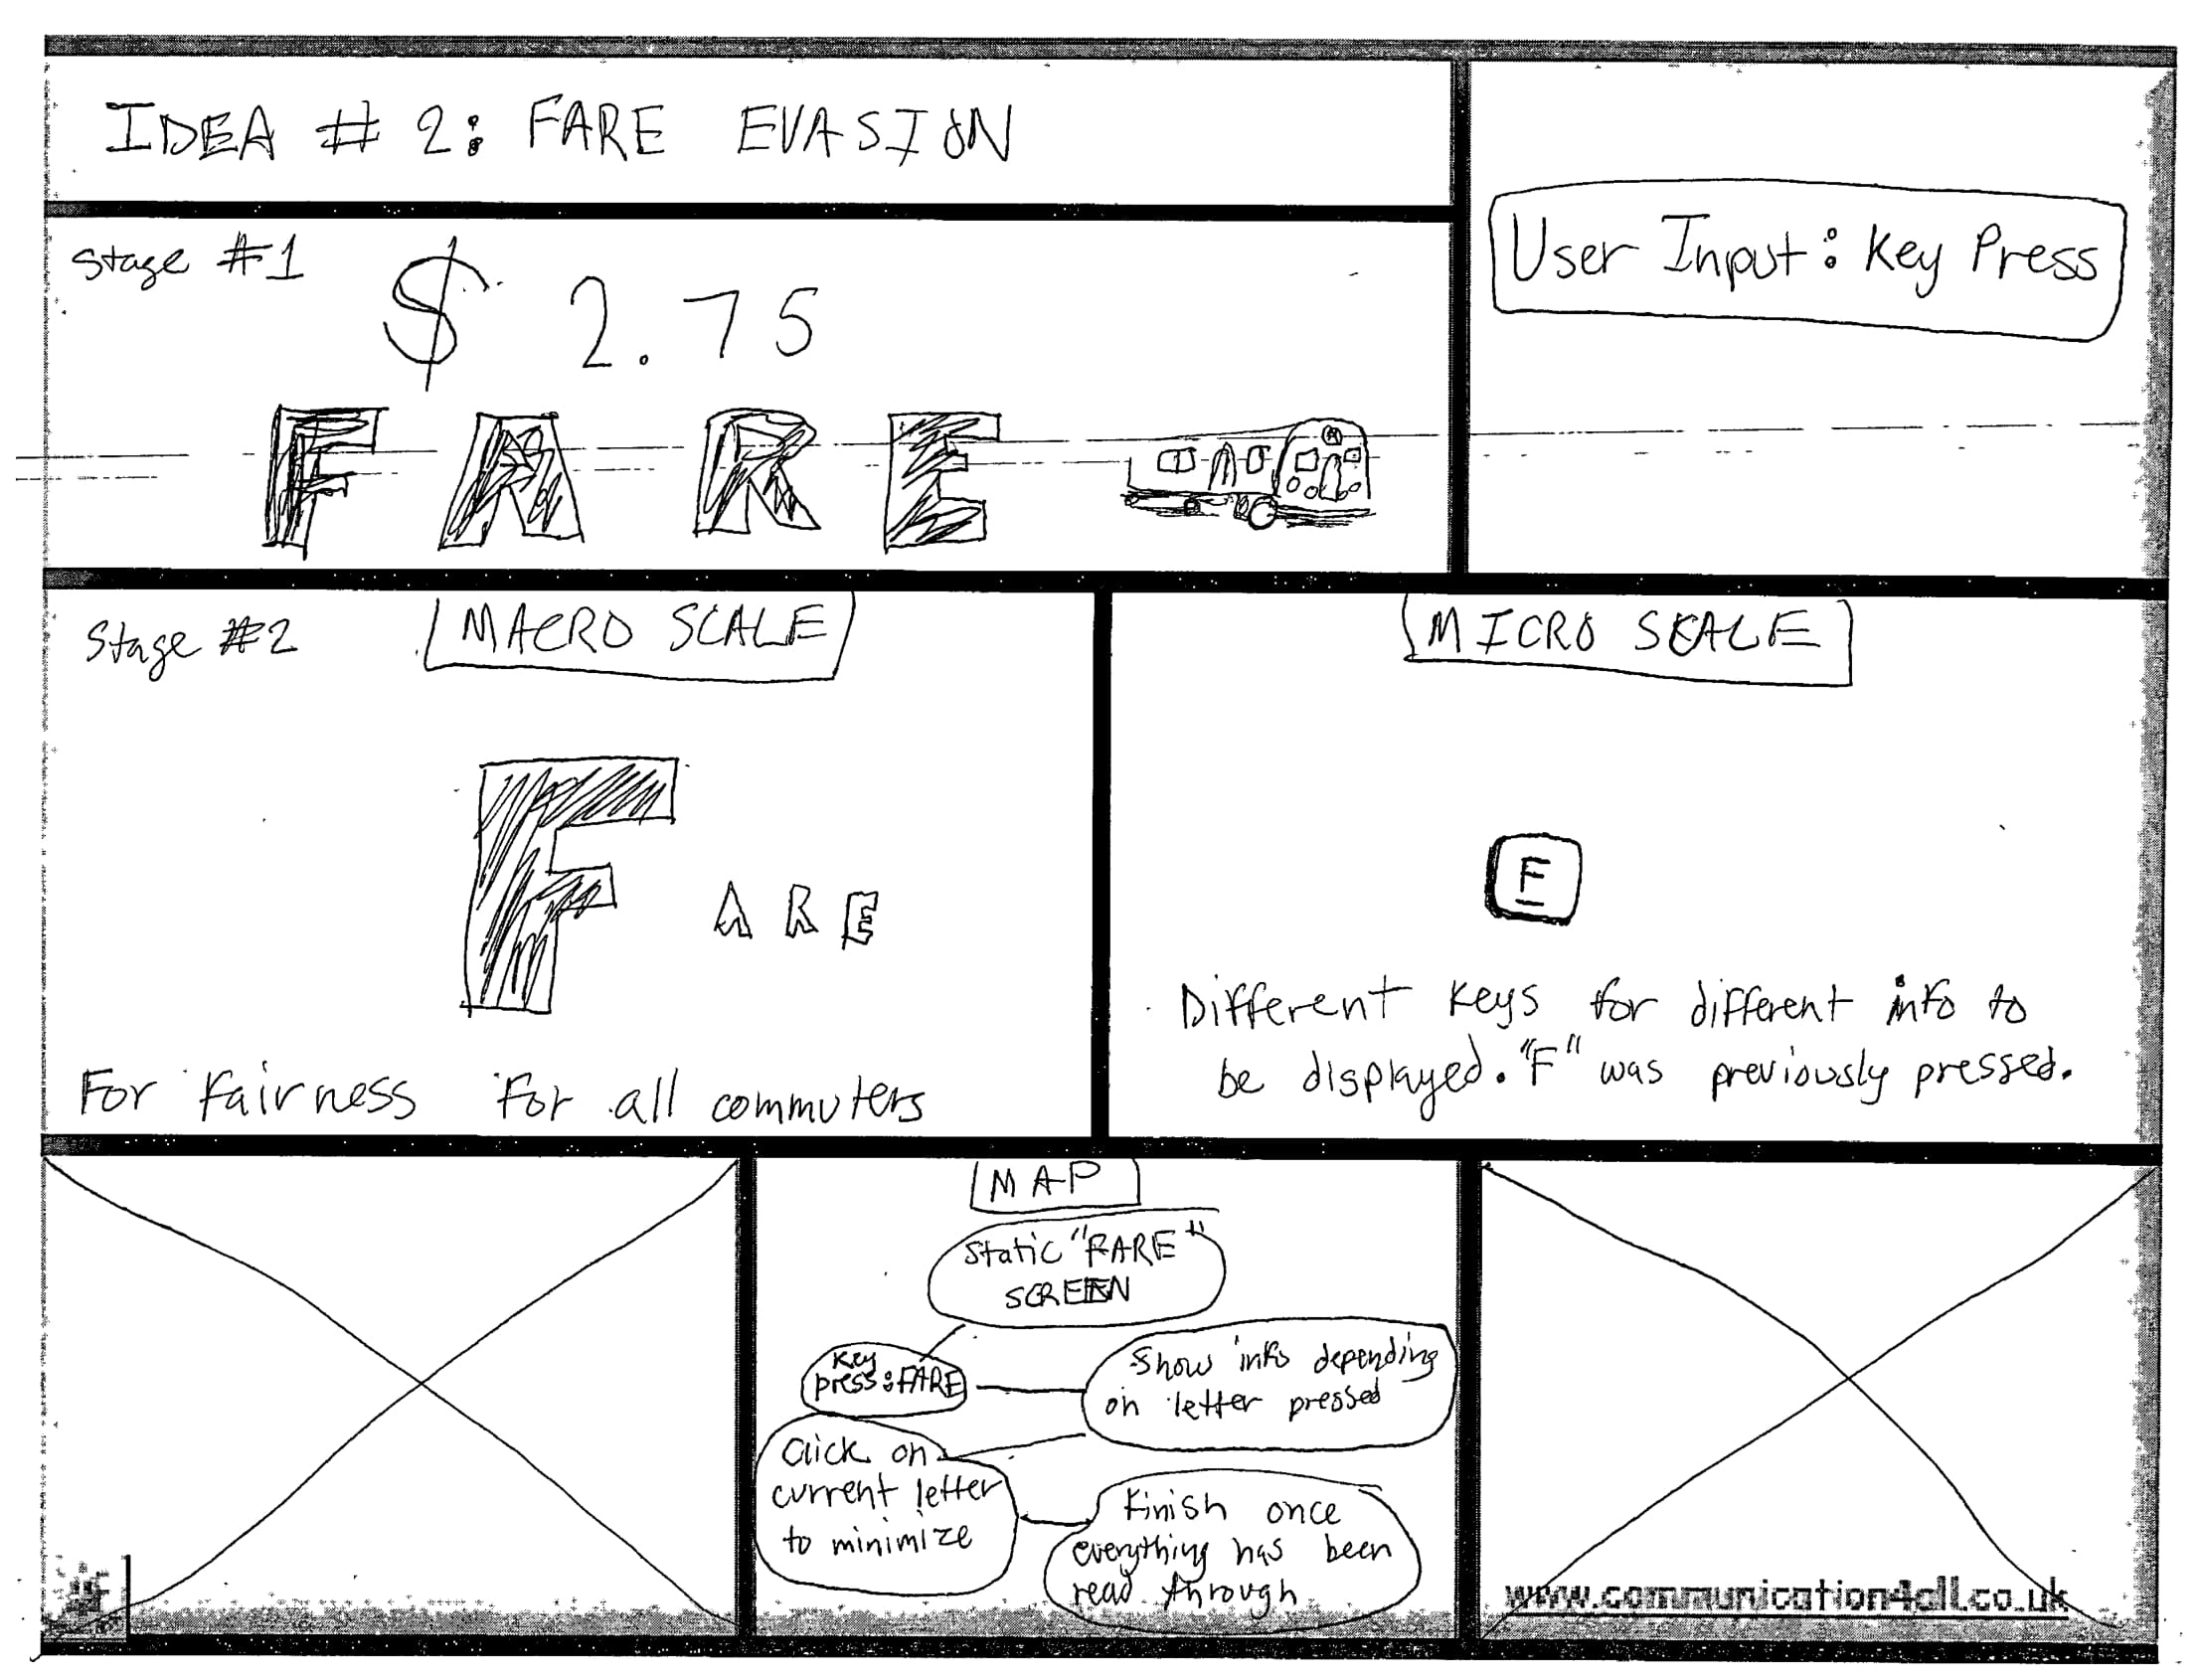 IDEA # 2: FARE EVASION
User Input: Key Press
Stage #1
$ 2.75
FARE
A
Stage #2
MACRO SCALE
F ARE
For fairness for all commuters
MICRO SCALE
F
Different keys for different info to
be displayed. "F" was previously pressed.
MAP
Static "FARE"
SCREEN
Key
press: FARE
Show info depending
on letter pressed
Click on
current letter
to minimize
Finish once
everything has been
read through
www.communication4all.co.uk